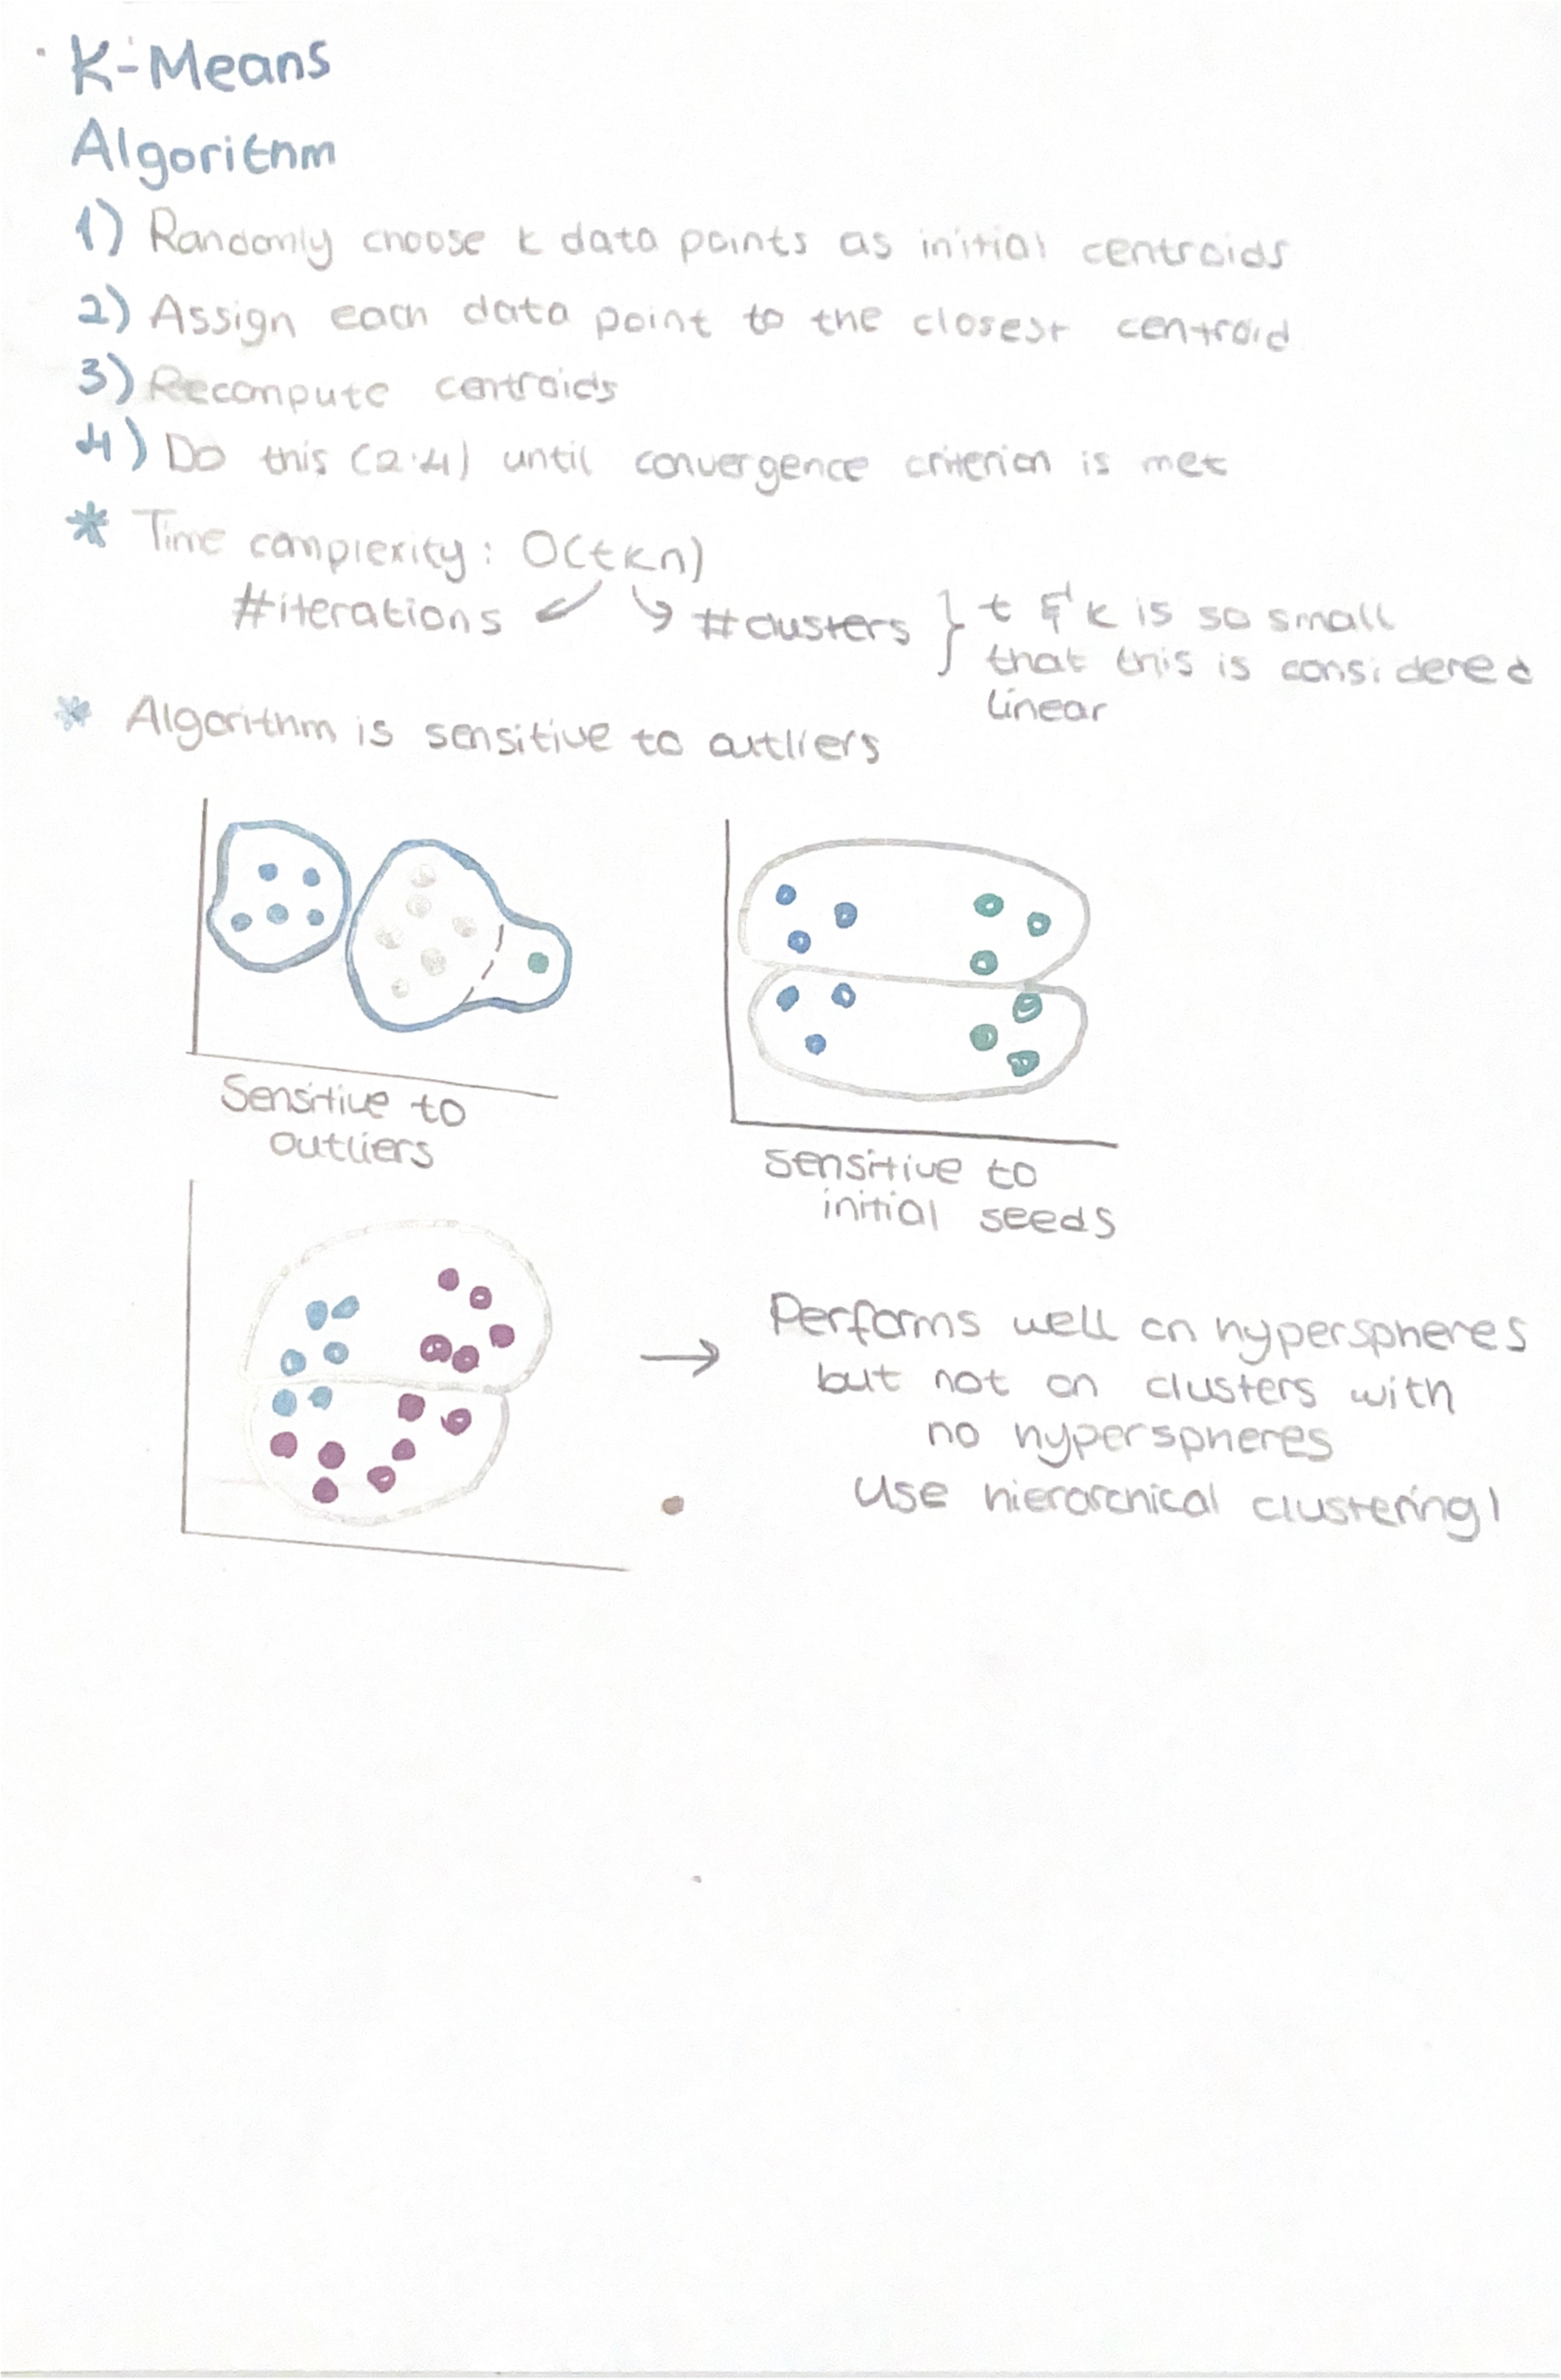 K-Means
Algorithm
1) Randomly choose k data points as initial centroids
2) Assign each data point to the closest centroid
3) Recompute centroids
4) Do this (2-4) until convergence criterion is met
* Time complexity: O(tkn)
#iterations #clusters } t & k is so small
that this is considered
linear
* Algorithm is sensitive to outliers
Sensitive to
outliers
sensitive to
initial seeds
→ Performs well on hyperspheres
but not on clusters with
no hyperspheres
Use hierarchical clustering!